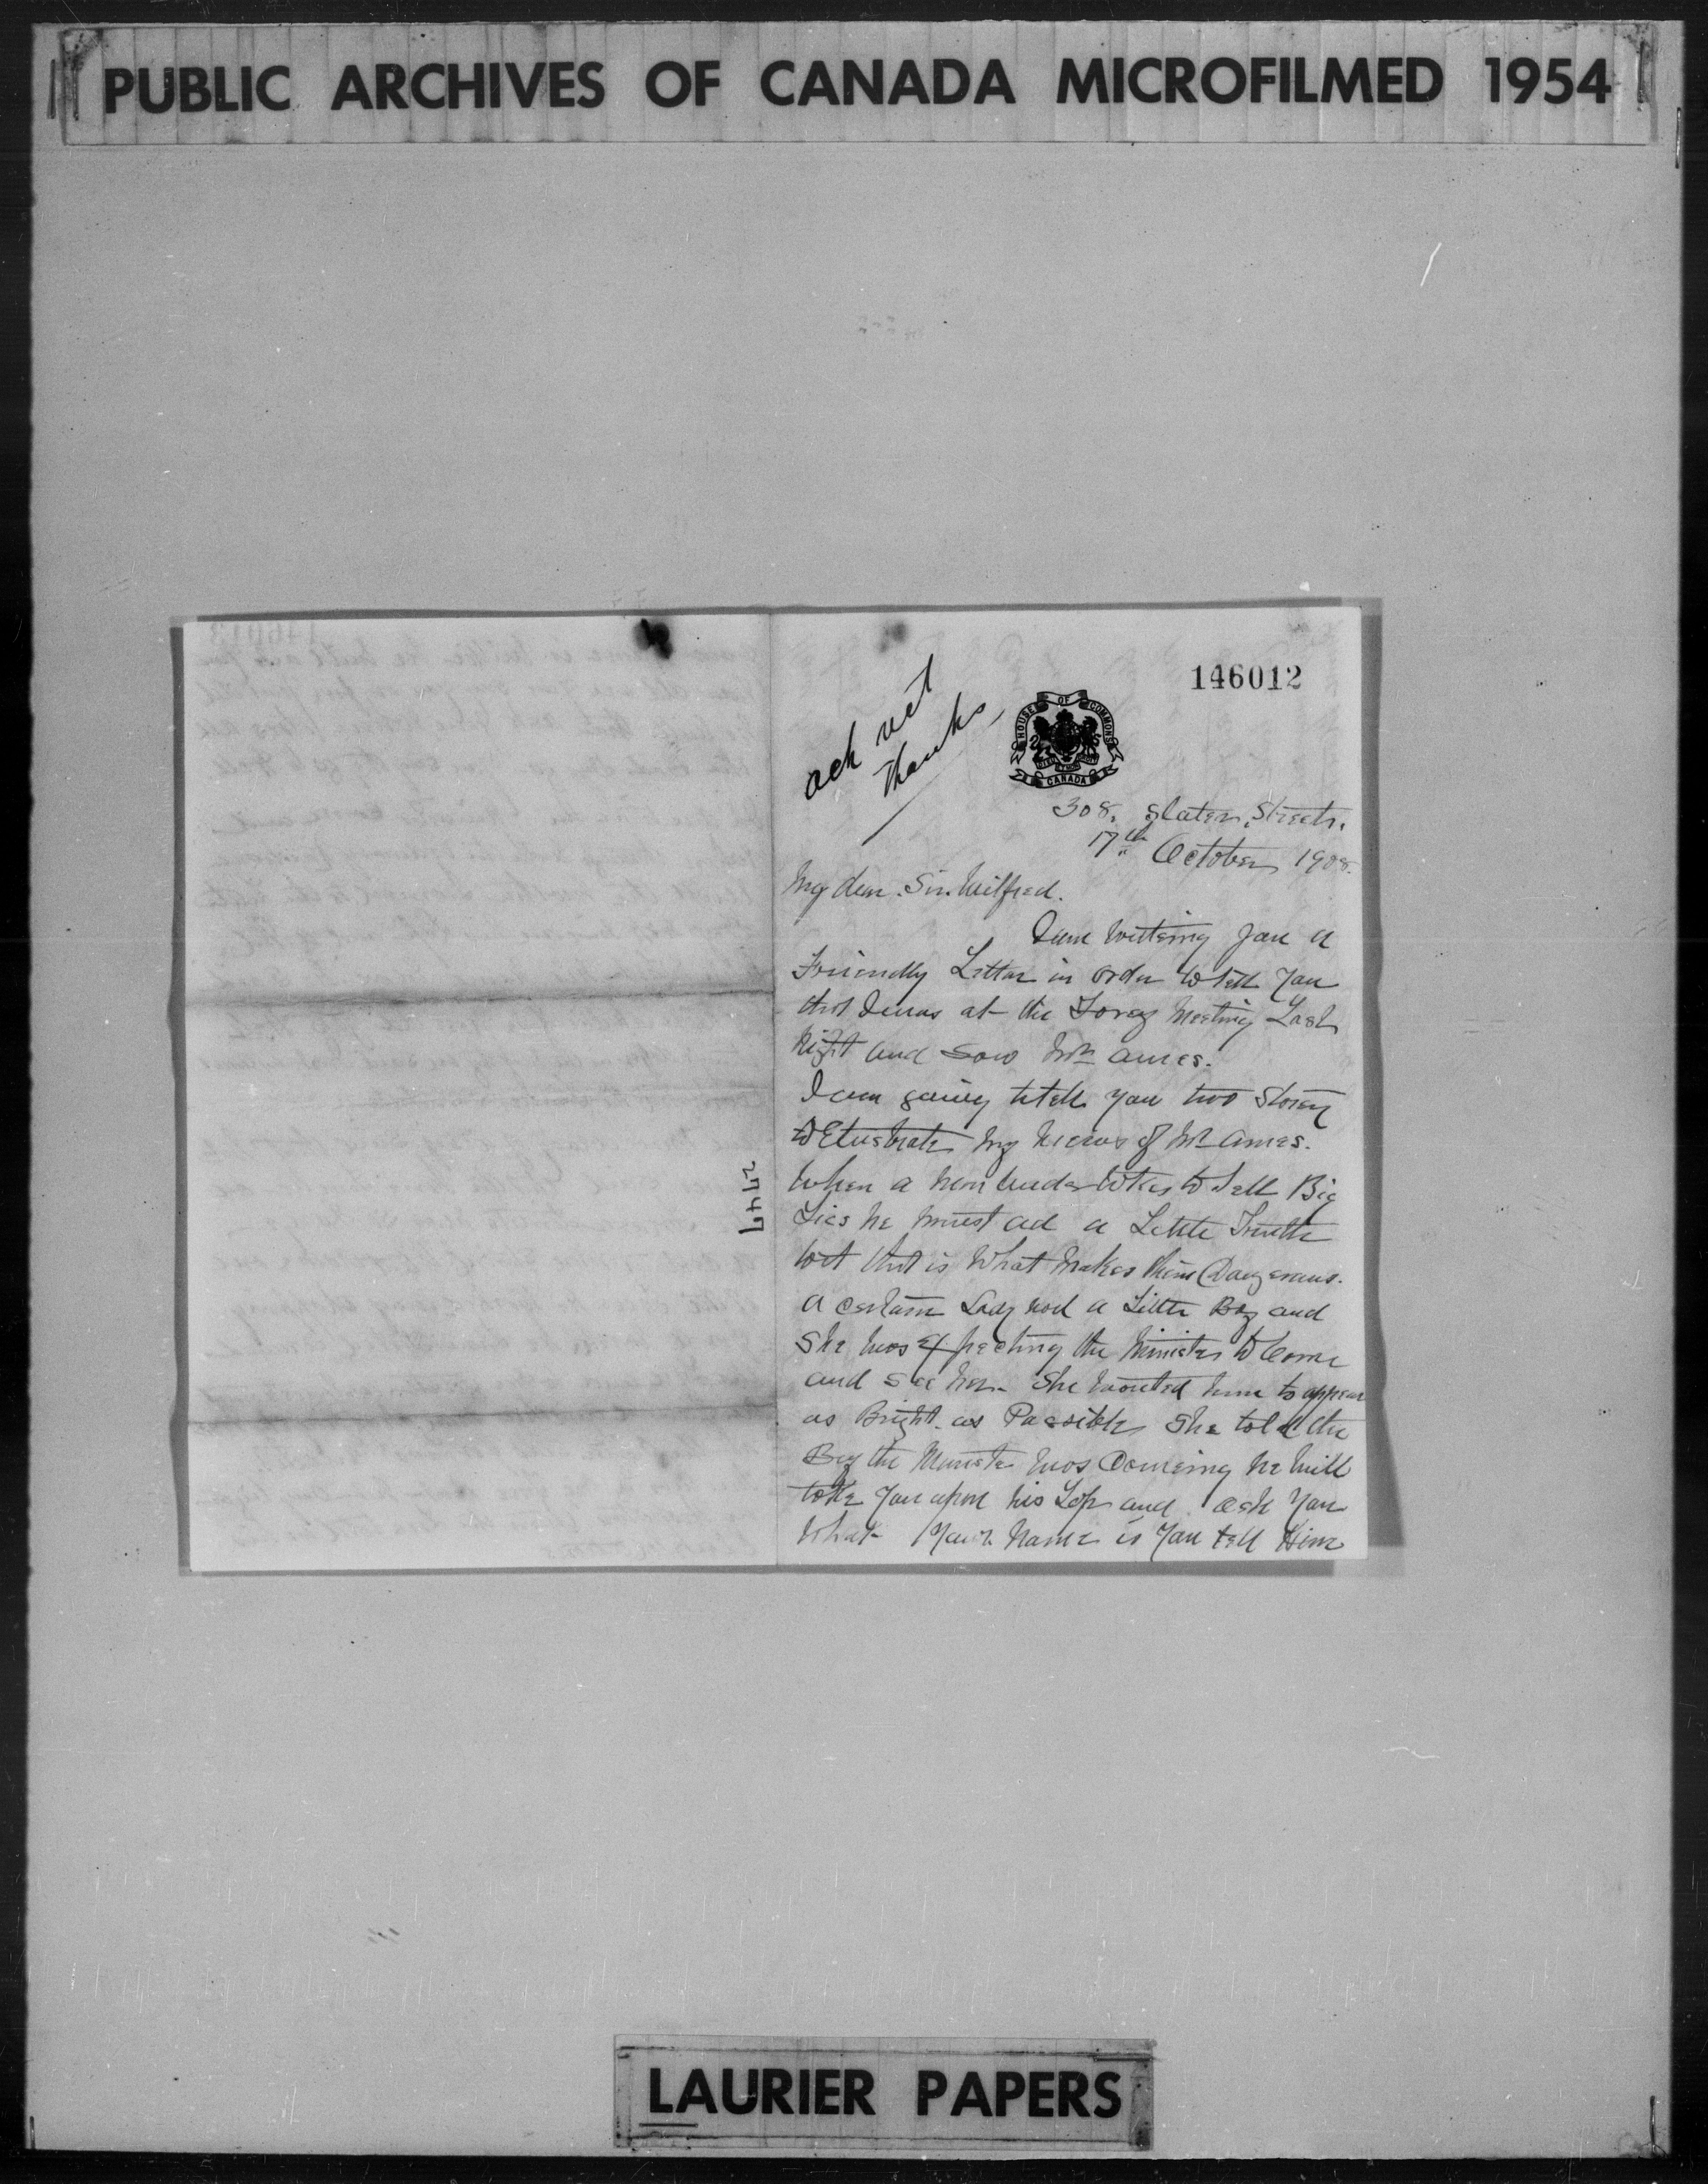 PUBLIC ARCHIVES OF CANADA MICROFILMED 1954
146012
ack
thanks
HOUSE OF COMMONS
CANADA
308, Slater Streets.
17th October 1908.
My dear Sir Wilfred.
I am writeing you a
Friendly Letter in order to tell you
that I was at the Torey Meeting Last
Night and Saw Mr Ames.
I am going to tell you two Storey
to Elustrate my Views of Mr Ames.
When a man undertakes to tell Big
Lies he must ad a Little Truth
to it that is What makes them Dangerous.
A certain Lady had a Little Boy and
She was Expecting the Minister to Come
and See her. She wanted him to appear
as Bright as Possible She told the
Boy the Minister was Comeing he will
take you upon his Lap and ask you
What Your Name is You tell Him
LAURIER PAPERS